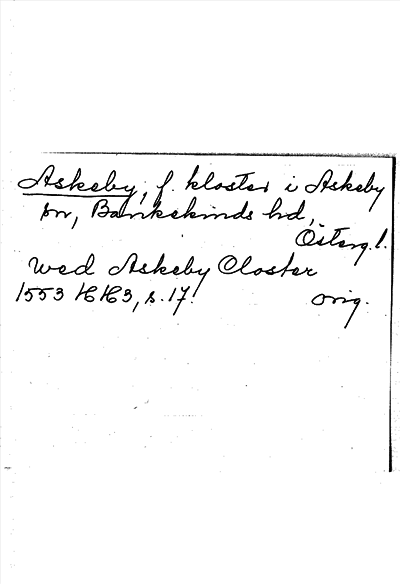 Askeby, f. kloster i Askeby
sn, Bankekinds hd,
Österg. l.
wed Askeby Closter
1553 HH3, s. 17. orig.